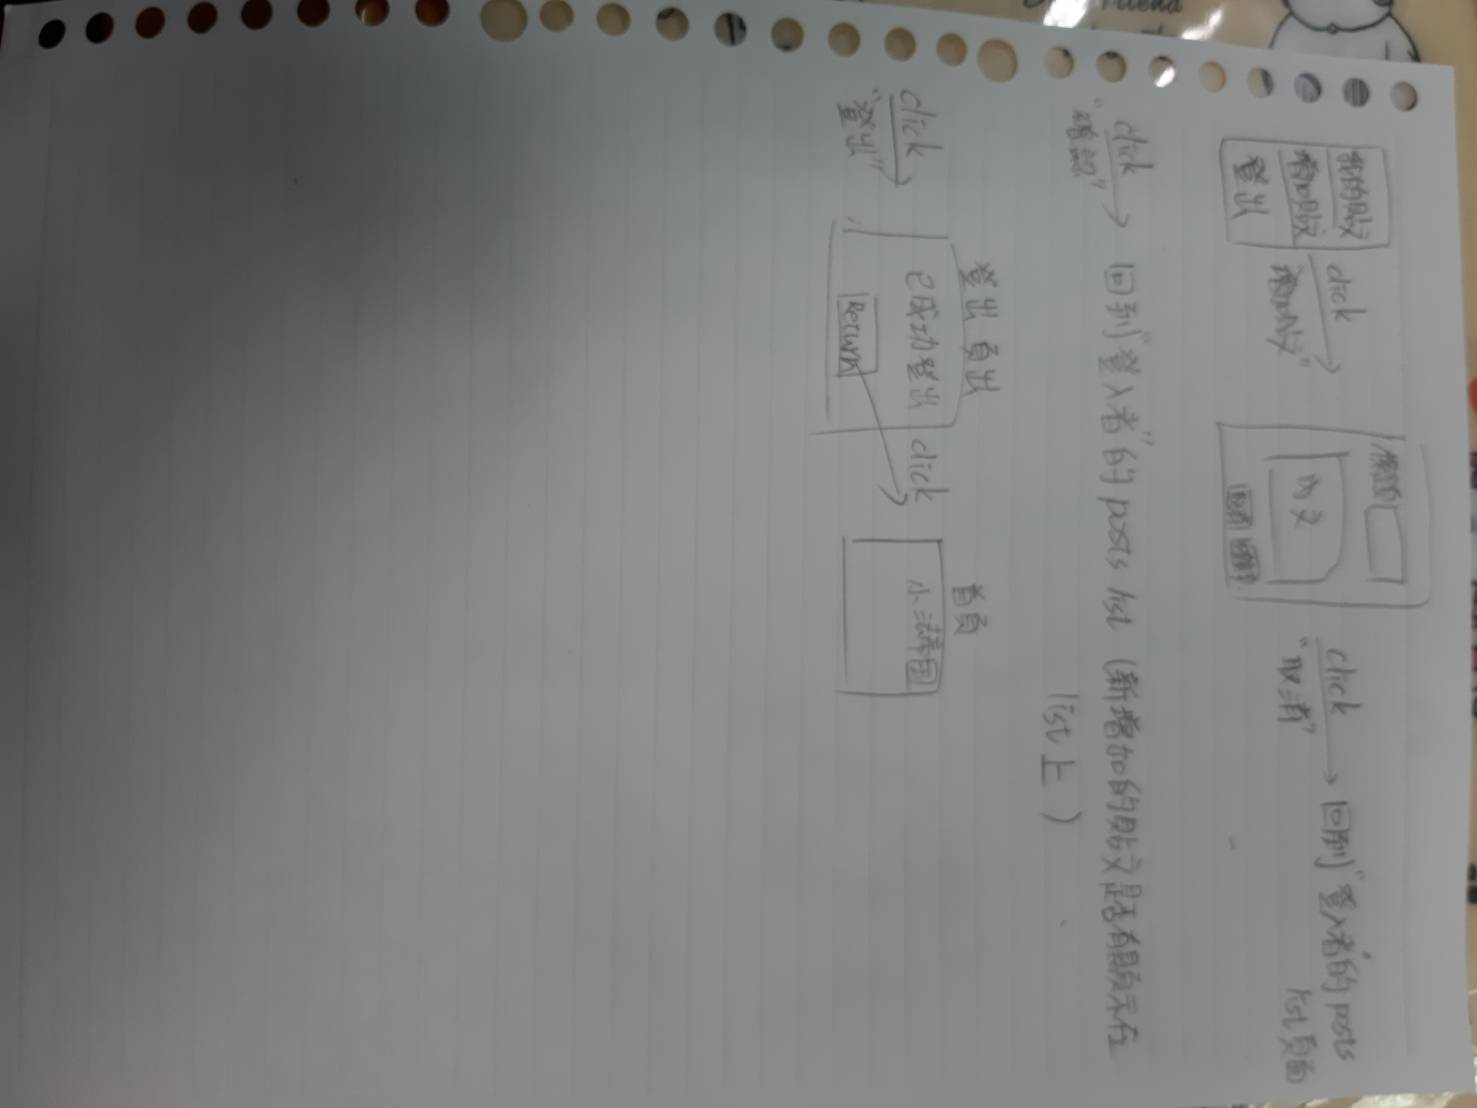 我的貼文
增加貼文
登出
click
"增加貼文"
標題
內文
取消 確認
click
"取消"
回到"登入者"的 posts
list 頁面
click
"確認"
回到"登入者"的 posts list (新增加的貼文是否有顯示在
list 上 )
登出 頁出
click
"登出"
已成功登出
Return
click
首頁
小法帝国